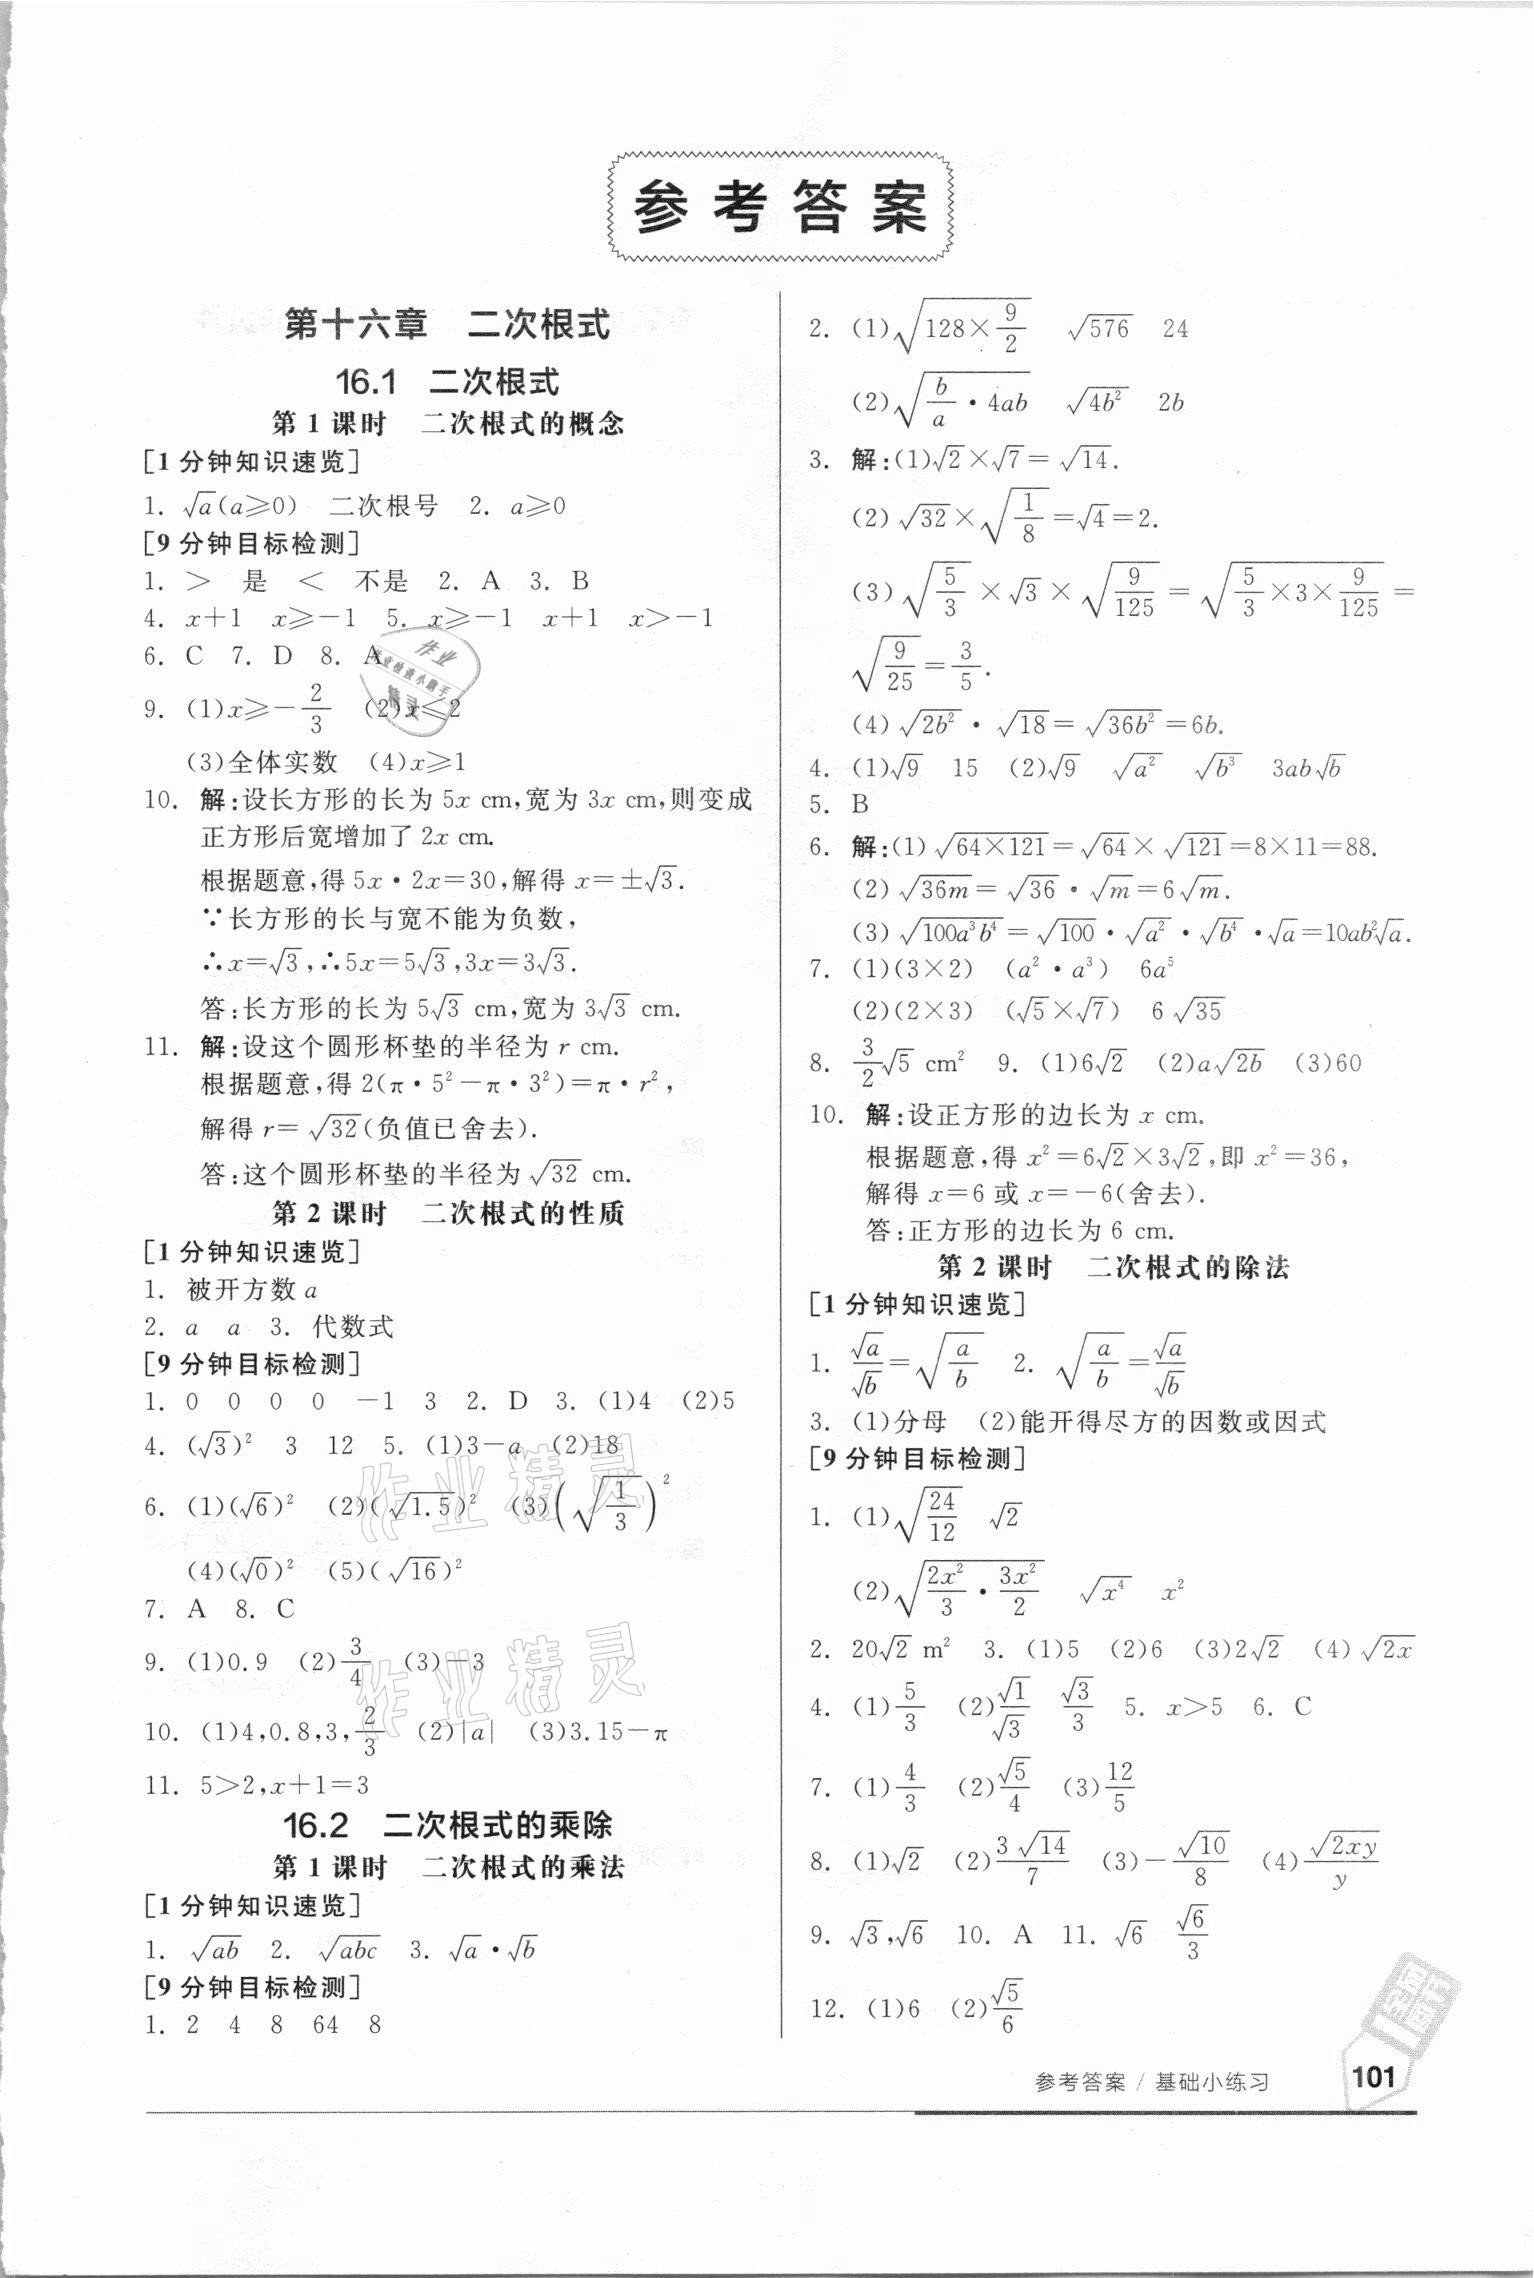 参考答案
第十六章 二次根式
16.1 二次根式
第1课时 二次根式的概念
[1分钟知识速览]
1. √a(a≥0) 二次根号 2. a≥0
[9分钟目标检测]
1. > 是 < 不是 2. A 3. B
4. x+1 x≥-1 5. x≥-1 x+1 x>-1
6. C 7. D 8. A
9. (1)x≥-2/3 (2)x≤2
(3)全体实数 (4)x≥1
10. 解:设长方形的长为5x cm,宽为3x cm,则变成
正方形后宽增加了2x cm.
根据题意,得5x·2x=30,解得x=±√3.
∵长方形的长与宽不能为负数,
∴x=√3,∴5x=5√3,3x=3√3.
答:长方形的长为5√3 cm,宽为3√3 cm.
11. 解:设这个圆形杯垫的半径为r cm.
根据题意,得2(π·5²-π·3²)=π·r²,
解得r=√32(负值已舍去).
答:这个圆形杯垫的半径为√32 cm.
第2课时 二次根式的性质
[1分钟知识速览]
1. 被开方数a
2. a a 3. 代数式
[9分钟目标检测]
1. 0 0 0 0 -1 3 2. D 3. (1)4 (2)5
4. (√3)² 3 12 5. (1)3-a (2)18
6. (1)(√6)² (2)(√1.5)² (3)(√(1/3))²
(4)(√0)² (5)(√16)²
7. A 8. C
9. (1)0.9 (2)3/4 (3)-3
10. (1)4,0.8,3,2/3 (2)|a| (3)3.15-π
11. 5>2,x+1=3
16.2 二次根式的乘除
第1课时 二次根式的乘法
[1分钟知识速览]
1. √(ab) 2. √(abc) 3. √a·√b
[9分钟目标检测]
1. 2 4 8 64 8
2. (1)√(128×9/2) √576 24
(2)√(b/a·4ab) √(4b²) 2b
3. 解:(1)√2×√7=√14.
(2)√32×√(1/8)=√4=2.
(3)√(5/3)×√3×√(9/125)=√(5/3×3×9/125)=
√(9/25)=3/5.
(4)√(2b²)·√18=√(36b²)=6b.
4. (1)√9 15 (2)√9 √(a²) √(b³) 3ab√b
5. B
6. 解:(1)√(64×121)=√64×√121=8×11=88.
(2)√(36m)=√36·√m=6√m.
(3)√(100a³b⁴)=√100·√(a²)·√(b⁴)·√a=10ab²√a.
7. (1)(3×2) (a²·a³) 6a⁵
(2)(2×3) (√5×√7) 6√35
8. 3/2√5 cm² 9. (1)6√2 (2)a√(2b) (3)60
10. 解:设正方形的边长为x cm.
根据题意,得x²=6√2×3√2,即x²=36,
解得x=6或x=-6(舍去).
答:正方形的边长为6 cm.
第2课时 二次根式的除法
[1分钟知识速览]
1. √a/√b=√(a/b) 2. √(a/b)=√a/√b
3. (1)分母 (2)能开得尽方的因数或因式
[9分钟目标检测]
1. (1)√(24/12) √2
(2)√(2x²/3·3x²/2) √(x⁴) x²
2. 20√2 m² 3. (1)5 (2)6 (3)2√2 (4)√(2x)
4. (1)5/3 (2)√1/√3 √3/3 5. x>5 6. C
7. (1)4/3 (2)√5/4 (3)12/5
8. (1)√2 (2)3√14/7 (3)-√10/8 (4)√(2xy)/y
9. √3,√6 10. A 11. √6 √6/3
12. (1)6 (2)√5/6
参考答案 / 基础小练习 101
作业精灵
作业精灵
作业
作业检查小助手
精灵